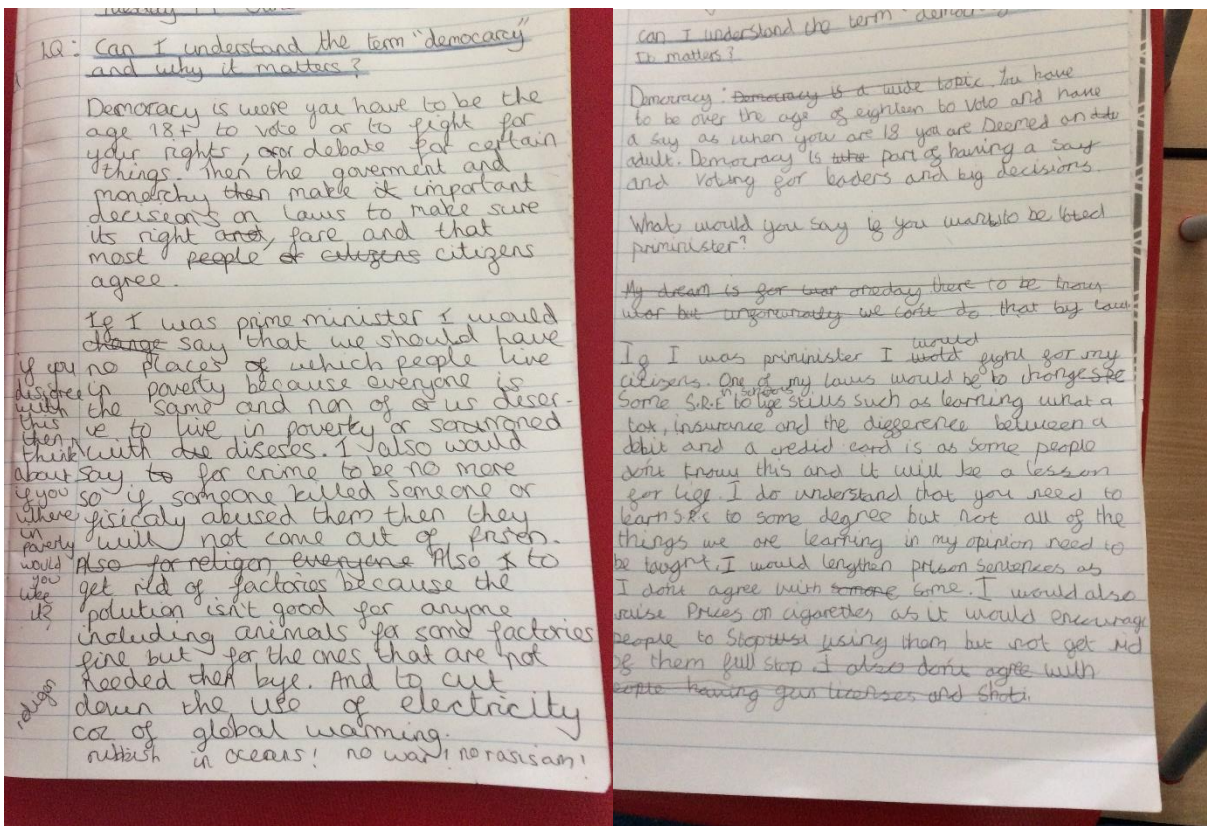 LQ: Can I understand the term "democarcy"
and why it matters?
Democracy is were you have to be the
age 18+ to vote or to fight for
your rights, or debate for certain
things. Then the goverment and
monarchy then make it important
decisions on laws to make sure
its right and, fare and that
most people of citizens citizens
agree.
If I was prime minister I would
change say that we should have
no places of which people live
in poverty because everyone is
the same and non of us deser-
ve to live in poverty or sorarouned
with die diseses. I also would
say to for crime to be no more
so if someone killed someone or
fisicaly abused them then they
will not come out of prison.
Also for religon everyone Also to
get rid of factories because the
polution isn't good for anyone
including animals for some factories
fine but for the ones that are not
needed then bye. And to cut
down the use of electricity
coz of global warming.
rubbish in oceans! no war! no rasisam!
if you
disigree
with
this
then
think
about
if you
where
in
poverty
would
you
like
it?
religon
can I understand the term
It matters?
Democracy: Democracy is a wide topic. You have
to be over the age of eighteen to vote and have
a say as when you are 18 you are Deemed an
adult. Democracy is part of having a say
and voting for leaders and big decisions.
What would you say if you want to be voted
priminister?
My dream is for war oneday there to be know
war but unforunatly we cont do that by law
If I was priminister I would fight for my
citizens. One of my laws would be to change
Some S.R.E in schools to life skills such as learning what a
tax, insurance and the difference between a
debit and a credid card is as some people
dont know this and it will be a lesson
for life. I do understand that you need to
learn S.R.E to some degree but not all of the
things we are learning in my opinion need to
be taught. I would lengthen prison sentences as
I dont agree with some some. I would also
raise Prices on cigarettes as it would encourage
people to stop using them but not get rid
of them full stop. I also dont agree with
people having gun licenses and